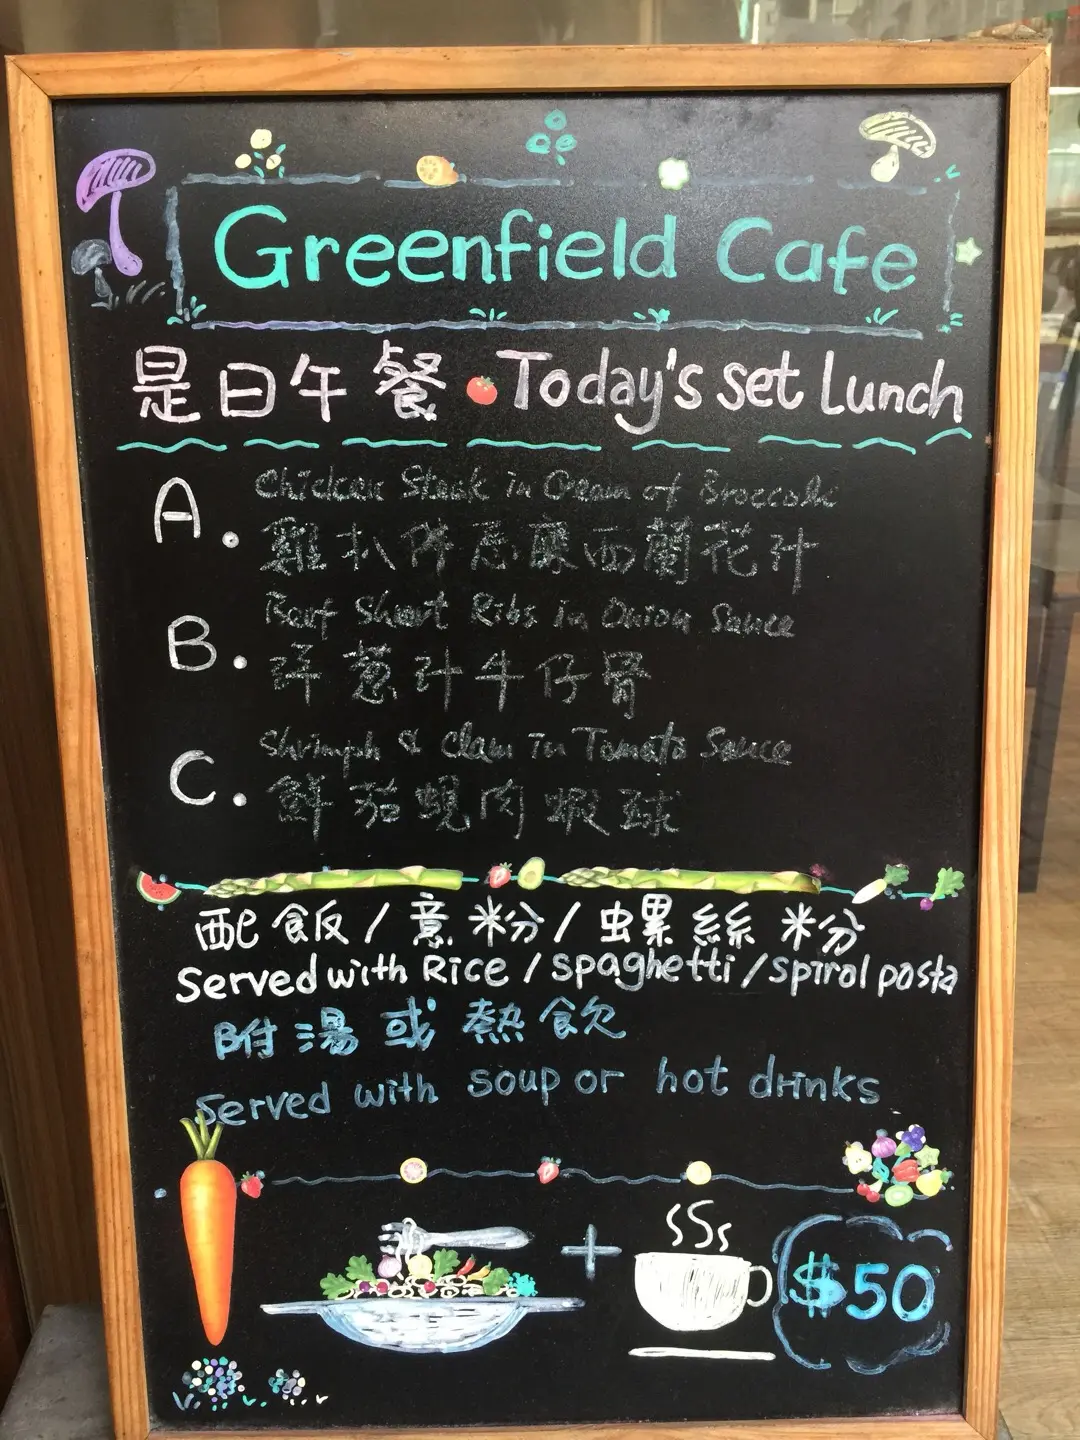 Greenfield Cafe
是日午餐 Today's set Lunch
A. Chicken Steak in Cream of Broccoli
雞扒伴忌廉西蘭花汁
B. Beef Short Ribs in Onion Sauce
洋蔥汁牛仔骨
C. Shrimph & Clam in Tomato Sauce
鮮茄蜆肉蝦球
配飯/意粉/螺絲粉
Served with Rice / spaghetti / spirol pasta
附湯或熱飲
Served with soup or hot drinks
+ $50